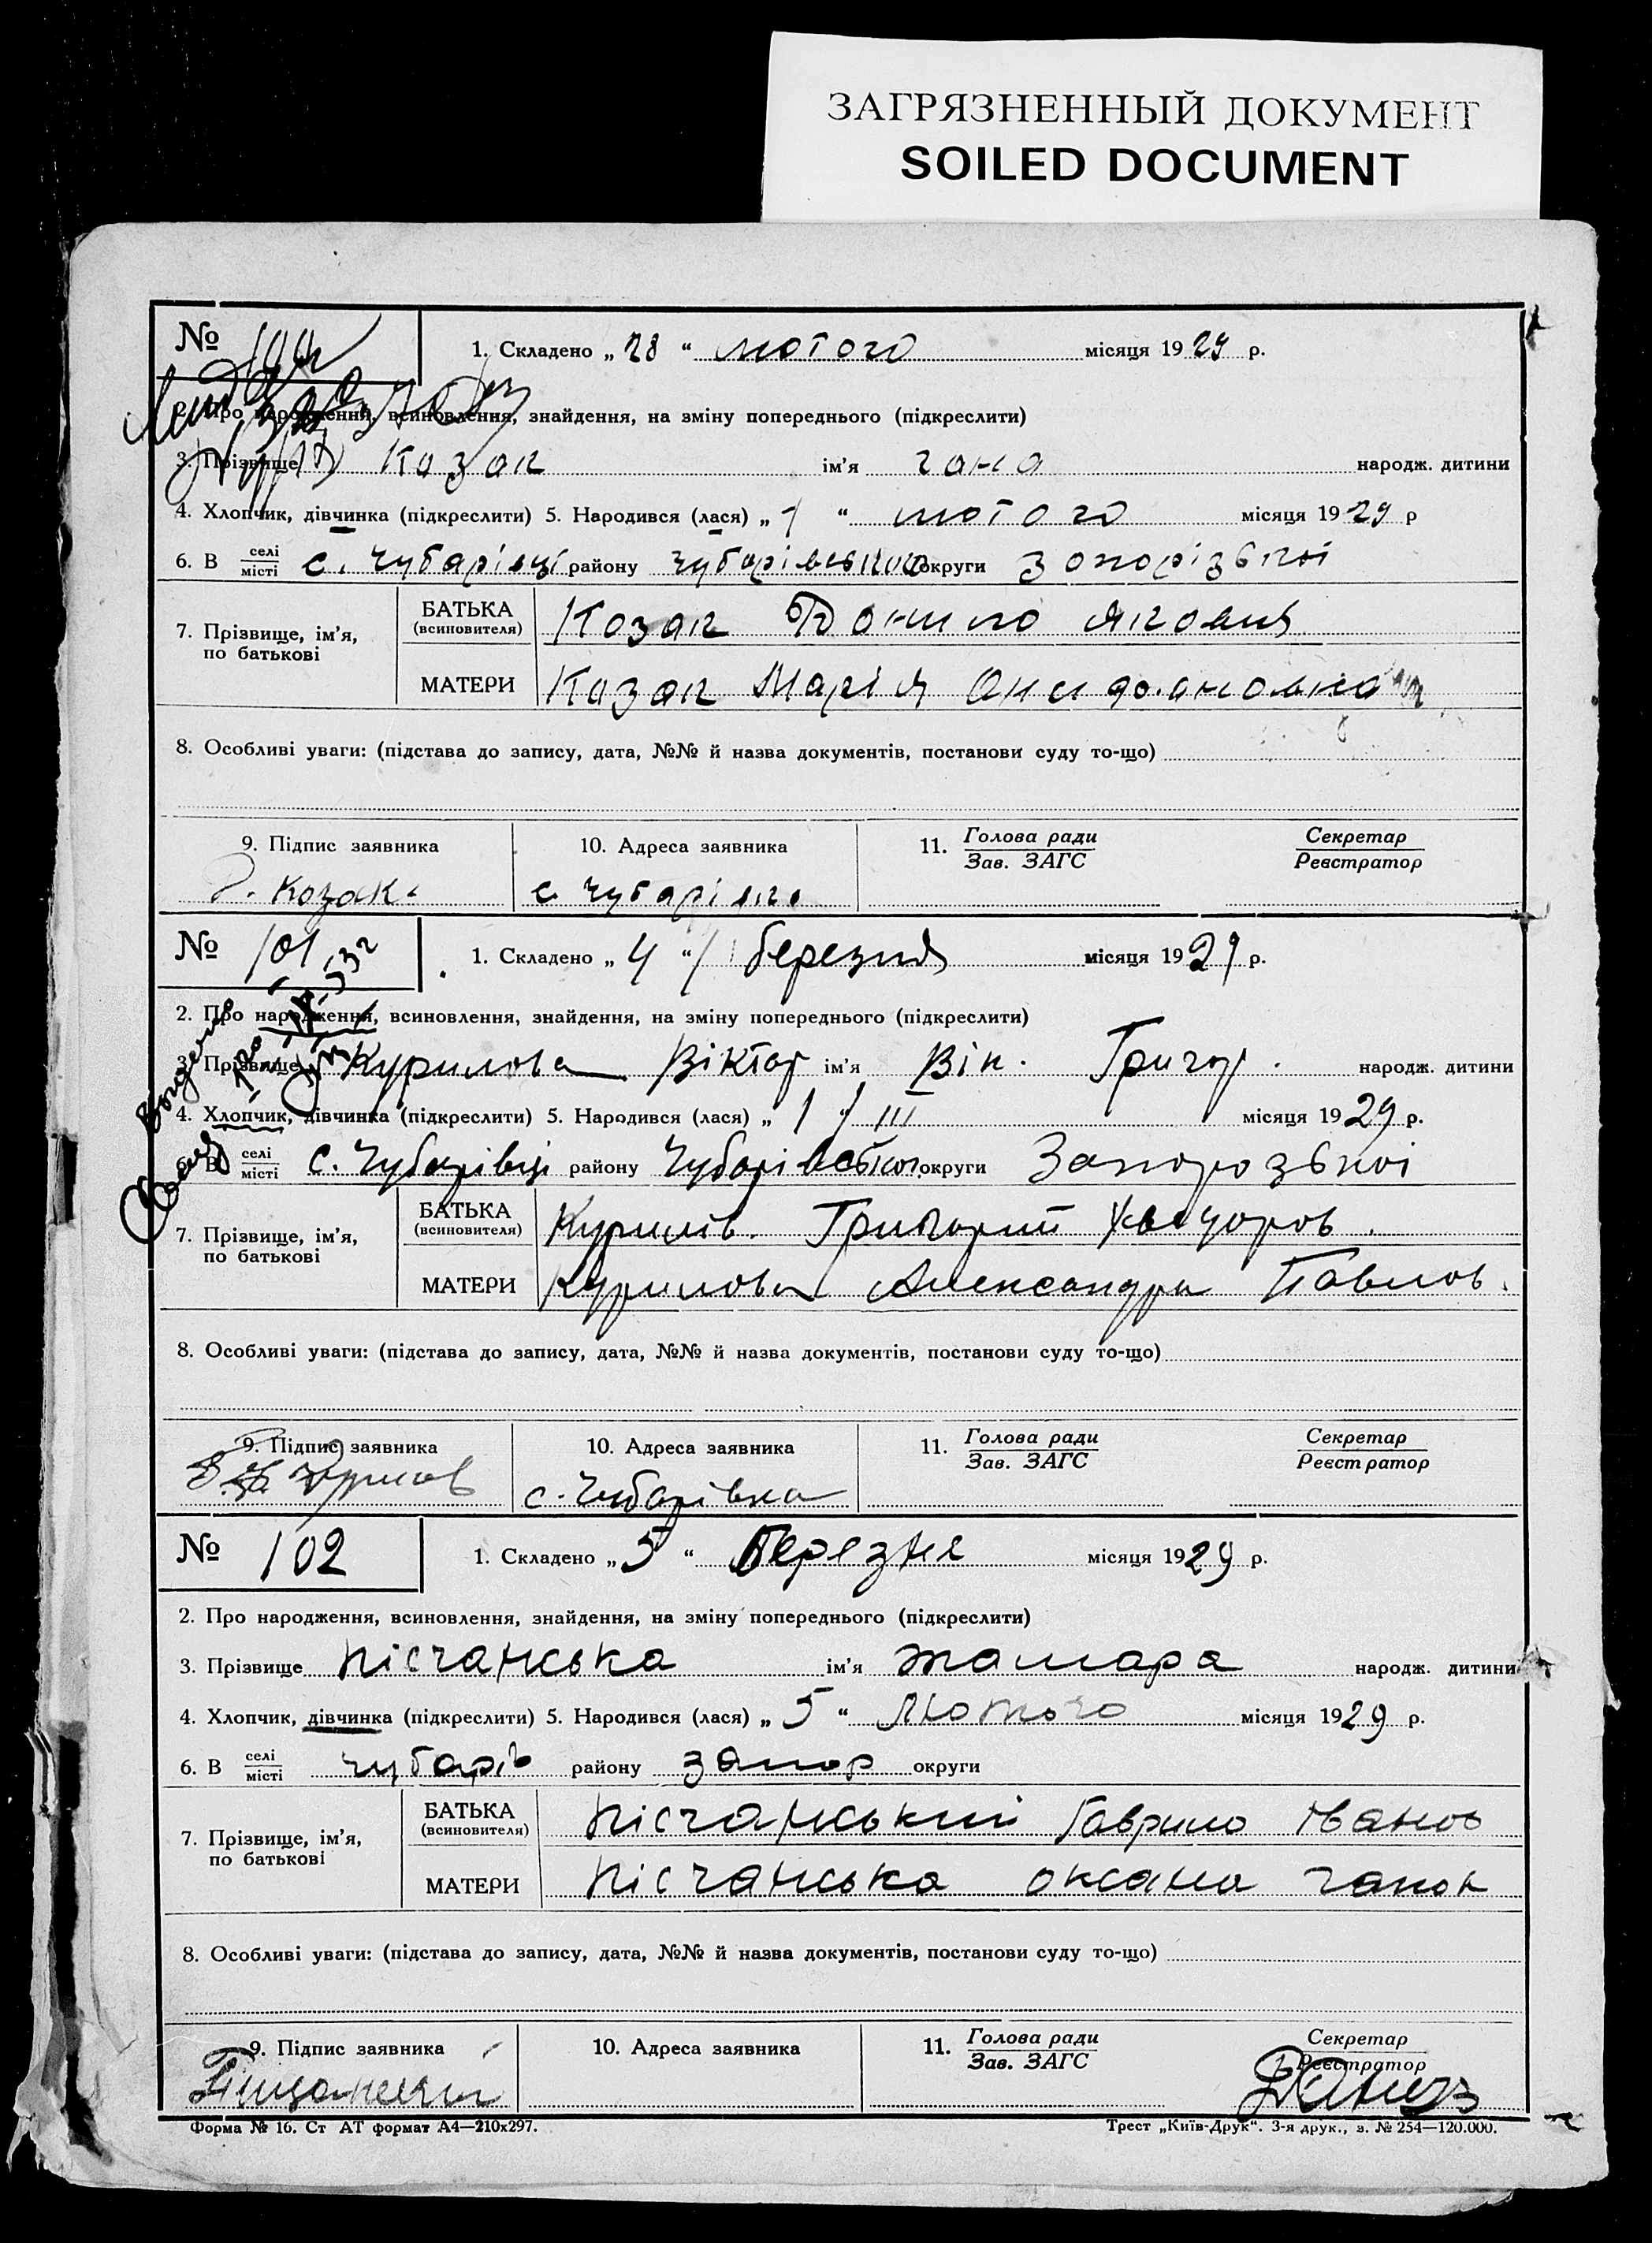 ЗАГРЯЗНЕННЫЙ ДОКУМЕНТ
SOILED DOCUMENT
№ 100
1. Складено „28“ лютого місяця 1929 р.
2. Про народження, всиновлення, знайдення, на зміну попереднього (підкреслити)
3. Прізвище Козак ім'я гана народж. дитини
4. Хлопчик, дівчинка (підкреслити) 5. Народився (лася) „1“ лютого місяця 1929 р
6. В селі/місті с. Чубарівці району Чубарівського округи Запорізької
7. Прізвище, ім'я, по батькові
БАТЬКА (всиновителя) Козак Данило Якович
МАТЕРИ Козак Марія
8. Особливі уваги: (підстава до запису, дата, №№ й назва документів, постанови суду то-що)
9. Підпис заявника 10. Адреса заявника 11. Голова ради/Зав. ЗАГС Секретар/Реєстратор
Козак с Чубарівка
№ 101
1. Складено „4“ березня місяця 1929 р.
2. Про народження, всиновлення, знайдення, на зміну попереднього (підкреслити)
3. Прізвище Курилова Віктор ім'я Вік. Григор. народж. дитини
4. Хлопчик, дівчинка (підкреслити) 5. Народився (лася) „1“ III місяця 1929 р.
6. В селі/місті с. Чубарівці району Чубарівського округи
7. Прізвище, ім'я, по батькові
БАТЬКА (всиновителя) Курилів. Григорий
МАТЕРИ Курилова Александра Павлов.
8. Особливі уваги: (підстава до запису, дата, №№ й назва документів, постанови суду то-що)
9. Підпис заявника 10. Адреса заявника 11. Голова ради/Зав. ЗАГС Секретар/Реєстратор
с. Чубарівка
№ 102
1. Складено „5“ Березня місяця 1929 р.
2. Про народження, всиновлення, знайдення, на зміну попереднього (підкреслити)
3. Прізвище Пісчанська ім'я тамара народж. дитини
4. Хлопчик, дівчинка (підкреслити) 5. Народився (лася) „5“ Лютого місяця 1929 р.
6. В селі/місті чубарів району запор округи
7. Прізвище, ім'я, по батькові
БАТЬКА (всиновителя) Пісчанський Гаврило Іванов
МАТЕРИ Пісчанська оксана
8. Особливі уваги: (підстава до запису, дата, №№ й назва документів, постанови суду то-що)
9. Підпис заявника 10. Адреса заявника 11. Голова ради/Зав. ЗАГС Секретар/Реєстратор
Форма № 16. Ст АТ формат А4—210х297. Трест „Київ-Друк“. 3-я друк., з. № 254—120.000.